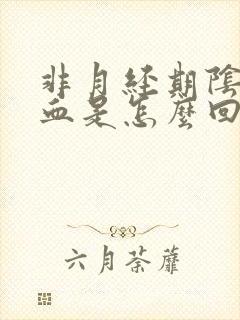 非月經期陰
血是怎麼回
六月荼蘼